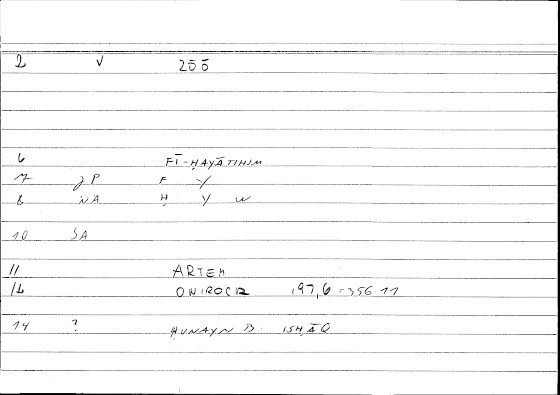 2 V 2ōō
6 FĪ-ḤAYĀTIHIM
7 JP F Y
8 NA Ḥ Y W
10 SA
11 ARTEM
12 ONIROCR 197,6 = 356.11
14 ? ḤUNAYN B. ISḤĀQ